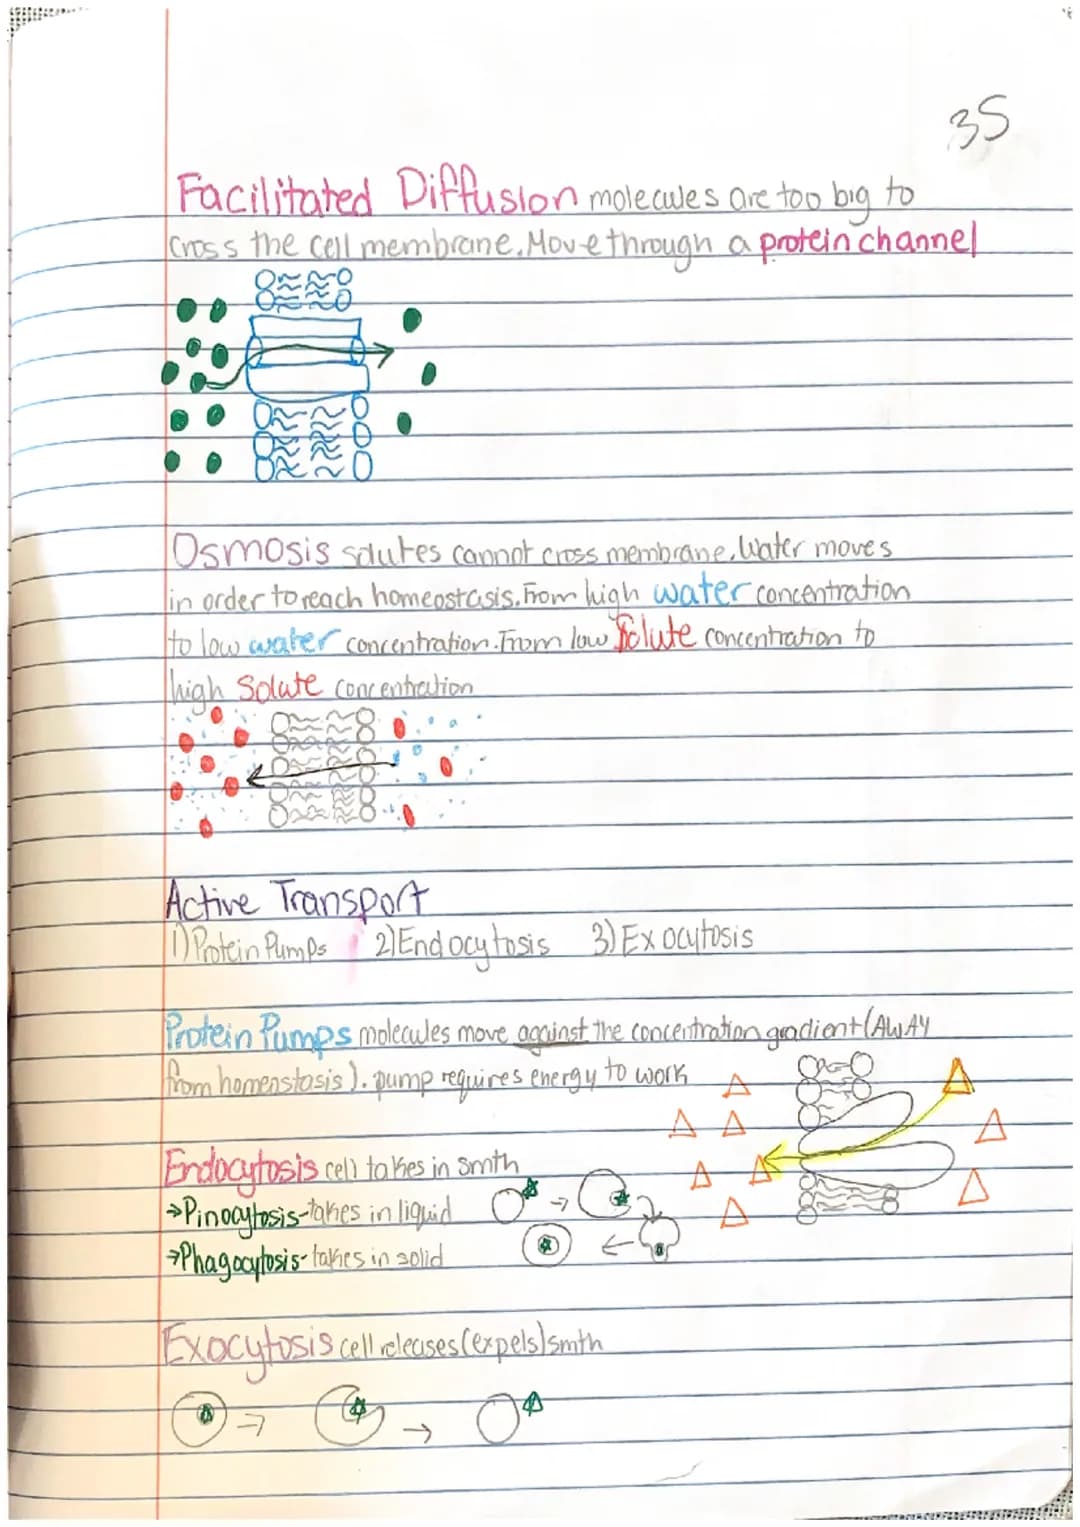 35
Facilitated Diffusion molecules are too big to
cross the cell membrane. Move through a protein channel
Osmosis solutes cannot cross membrane. Water moves
in order to reach homeostasis. From high water concentration
to low water concentration. From low Solute concentration to
high Solute concentration
Active Transport
1) Protein Pumps 2) Endocytosis 3) Exocytosis
Protein Pumps molecules move against the concentration gradient (AWAY
from homenstasis). pump requires energy to work
Endocytosis cell takes in smth
→Pinocytosis-takes in liquid
→Phagocytosis-takes in solid
Exocytosis cell releases (expels) smth